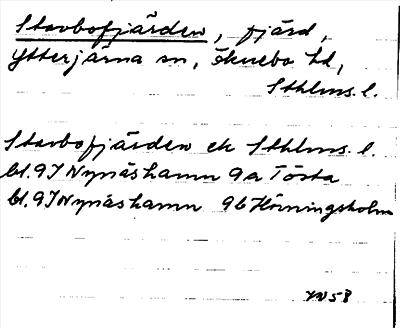 Stavbofjärden, fjärd,
Ytterjärna sn, Öknebo hd,
Sthlms. l.
Stavbofjärden ek Sthlms. l.
bl. 9I Nynäshamn 9a Tösta
bl. 9I Nynäshamn 9b Hörningsholm
YN 58